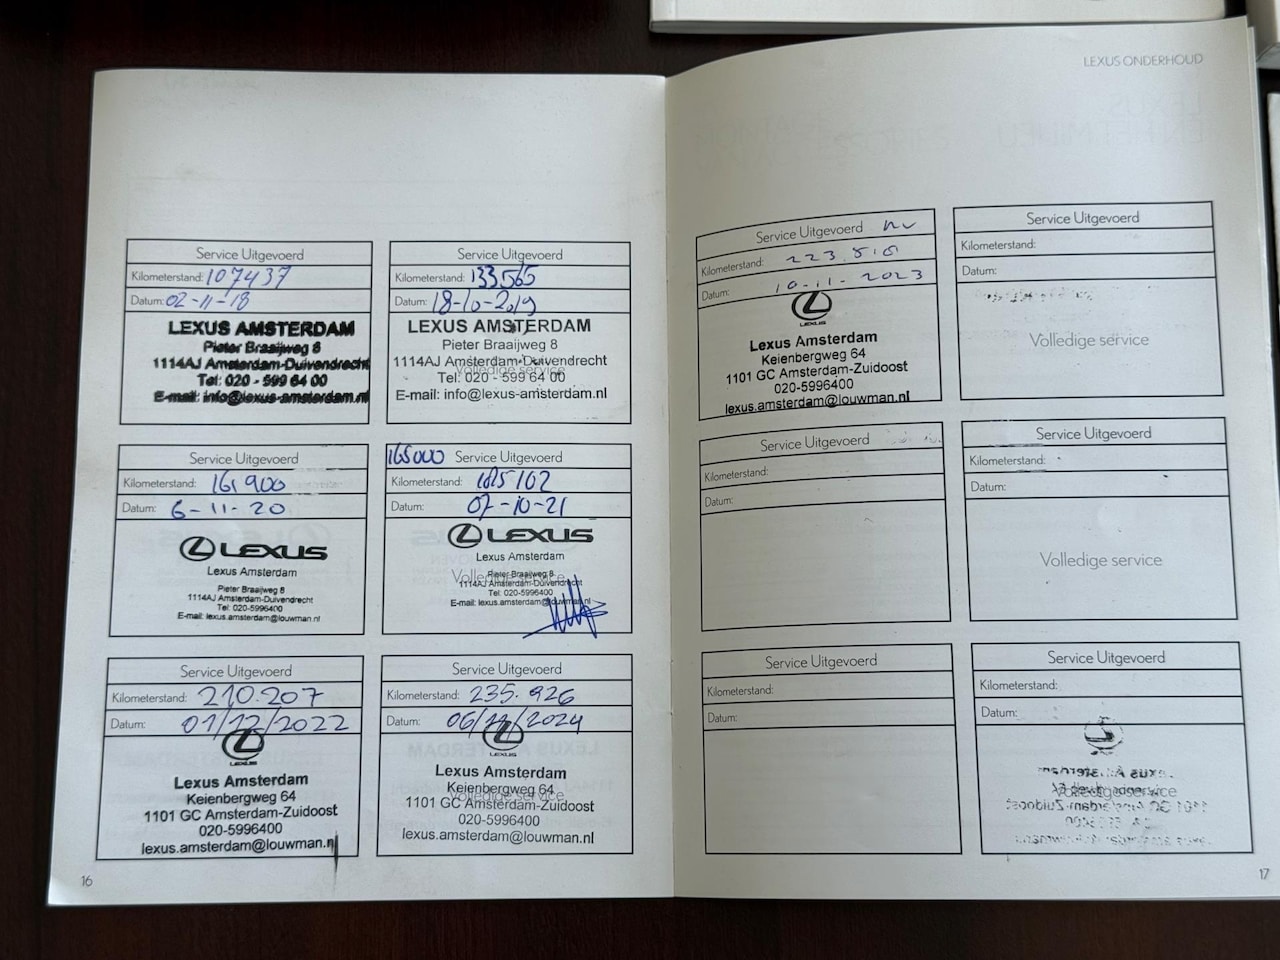 LEXUS ONDERHOUD
Service Uitgevoerd
Kilometerstand: 107437
Datum: 02-11-18
LEXUS AMSTERDAM
Pieter Braaijweg 8
1114AJ Amsterdam-Duivendrecht
Tel: 020 - 599 64 00
E-mail: info@lexus-amsterdam.nl
Service Uitgevoerd
Kilometerstand: 133565
Datum: 18-10-2019
Volledige service
LEXUS AMSTERDAM
Pieter Braaijweg 8
1114AJ Amsterdam-Duivendrecht
Tel: 020 - 599 64 00
E-mail: info@lexus-amsterdam.nl
Service Uitgevoerd
Kilometerstand: 161900
Datum: 6-11-20
LEXUS
Lexus Amsterdam
Pieter Braaijweg 8
1114AJ Amsterdam-Duivendrecht
Tel: 020-5996400
E-mail: lexus.amsterdam@louwman.nl
165000 Service Uitgevoerd
Kilometerstand: 185162
Datum: 07-10-21
LEXUS
Lexus Amsterdam
Volledige service
Pieter Braaijweg 8
1114AJ Amsterdam-Duivendrecht
Tel: 020-5996400
E-mail: lexus.amsterdam@louwman.nl
Service Uitgevoerd
Kilometerstand: 210.207
Datum: 01/12/2022
LEXUS
Lexus Amsterdam
Keienbergweg 64
1101 GC Amsterdam-Zuidoost
020-5996400
lexus.amsterdam@louwman.nl
Service Uitgevoerd
Kilometerstand: 235.926
Datum: 06/11/2024
LEXUS
Lexus Amsterdam
Keienbergweg 64
Volledige service
1101 GC Amsterdam-Zuidoost
020-5996400
lexus.amsterdam@louwman.nl
16
Service Uitgevoerd
Kilometerstand: 223.515
Datum: 10-11-2023
LEXUS
Lexus Amsterdam
Keienbergweg 64
1101 GC Amsterdam-Zuidoost
020-5996400
lexus.amsterdam@louwman.nl
Service Uitgevoerd
Kilometerstand:
Datum:
Volledige service
Service Uitgevoerd
Kilometerstand:
Datum:
Service Uitgevoerd
Kilometerstand:
Datum:
Volledige service
Service Uitgevoerd
Kilometerstand:
Datum:
Service Uitgevoerd
Kilometerstand:
Datum:
Volledige service
17